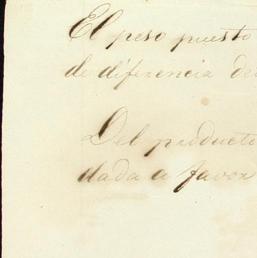 El peso puesto
de diferencia de
Del producto
dada a favor